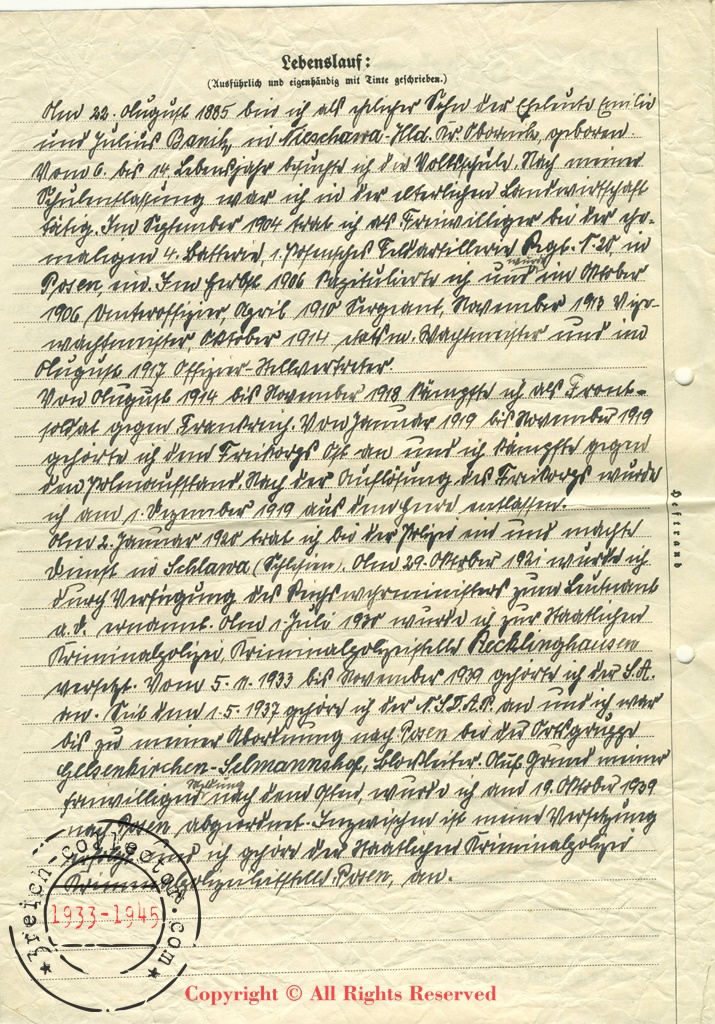 Lebenslauf:
(Ausführlich und eigenhändig mit Tinte geschrieben.)
Am 22. August 1885 bin ich als ehelicher Sohn der Eheleute Emilie
und Julius Banik, in Nieschawa-Hld. Kr. Obornik, geboren.
Vom 6. bis 14. Lebensjahr besuchte ich die Volksschule. Nach meiner
Schulentlassung war ich in der elterlichen Landwirtschaft
tätig. Im September 1904 trat ich als Freiwilliger bei der ehe-
maligen 4. Batterie, 1. Posensches Feldartillerie Regt. N. 20, in
Posen, ein. Im Herbst 1906 kapitulierte ich und wurde im Oktober
1906 Unteroffizier, April 1910 Sergeant, November 1913 Vize-
wachtmeister, Oktober 1914 etatsm. Wachtmeister und im
August 1917 Offizier-Stellvertreter.
Von August 1914 bis November 1918 kämpfte ich als Front-
soldat gegen Frankreich. Von Januar 1919 bis November 1919
gehörte ich dem Freikorps Ost an und ich kämpfte gegen
den Polenaufstand. Nach der Auflösung des Freikorps wurde
ich am 1. Dezember 1919 aus dem Heere entlassen.
Am 2. Januar 1920 trat ich bei der Polizei ein und machte
Dienst in Schlawa (Schlesien). Am 29. Oktober 1921 wurde ich
durch Verfügung des Reichswehrministers zum Leutnant
a.D. ernannt. Am 1. Juli 1930 wurde ich zur Staatlichen
Kriminalpolizei, Kriminalpolizeistelle Recklinghausen
versetzt. Vom 5. 11. 1933 bis November 1939 gehörte ich der S.A.
an. Seit dem 1. 5. 1937 gehöre ich der N.S.D.A.P. an und ich war
bis zu meiner Abordnung nach Posen bei der Ortsgruppe
Gelsenkirchen-Selmannshof, Blockleiter. Auf Grund meiner
freiwilligen Meldung nach dem Osten, wurde ich am 19. Oktober 1939
nach Posen abgeordnet. Inzwischen ist meine Versetzung
und ich gehöre der Staatlichen Kriminalpolizei
Kriminalpolizeileitstelle Posen, an.
Heftrand
3reich-collector.com
1933-1945
Copyright © All Rights Reserved